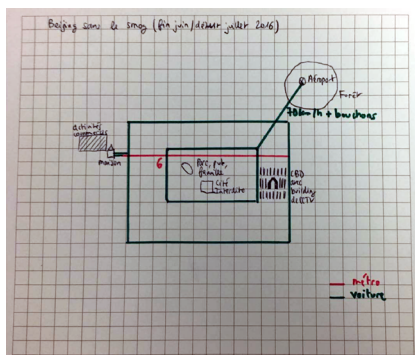 Beijing sans le smog (fin juin/début juillet 2016)
Aéroport
Forêt
70 km/h + bouchons
activités
maison
6
Parc, pub,
famille
Cité
interdite
CBD
avec
building
de CCTV
métro
voiture